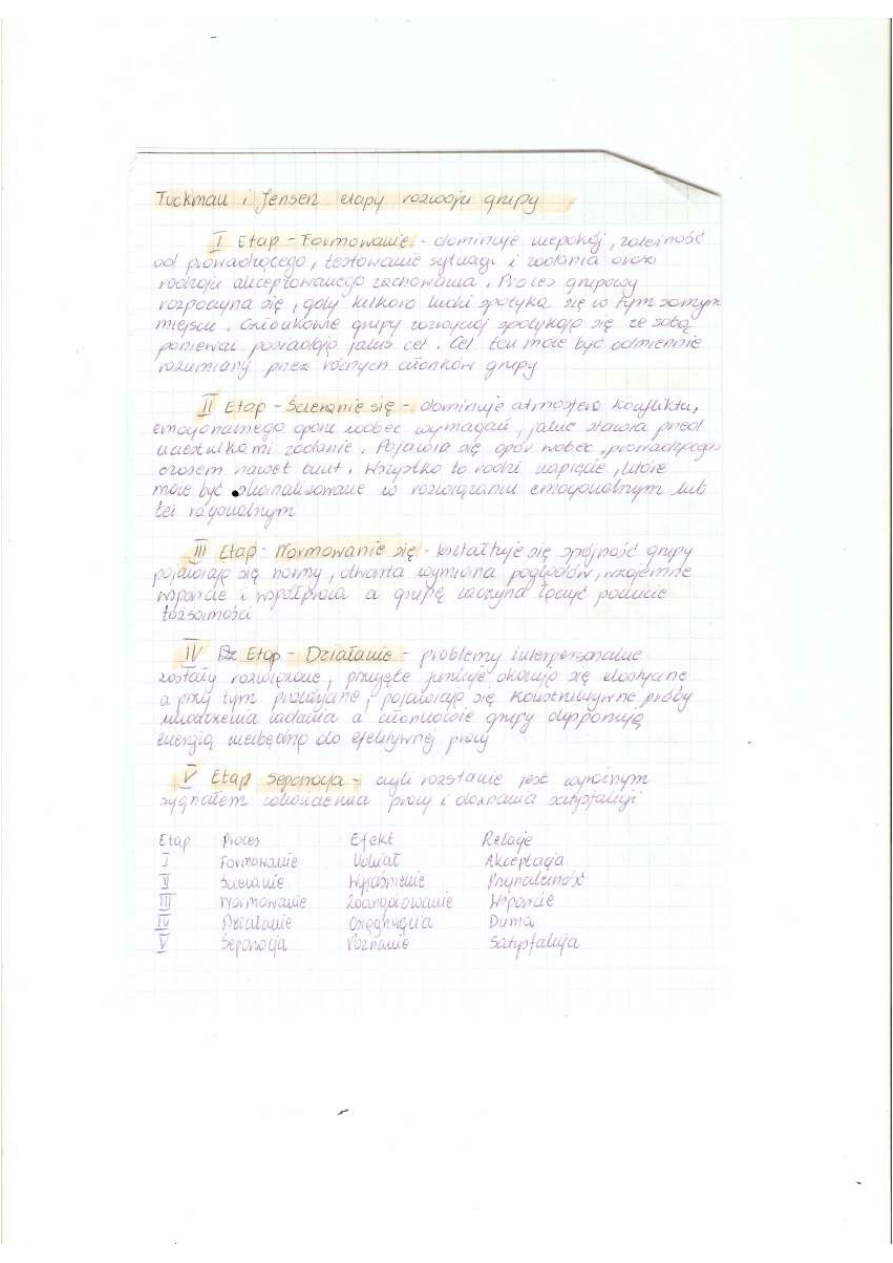 Tuckman i Jensen etapy rozwoju grupy
I Etap - Formowanie - dominuje niepokój, zależność
od prowadzącego, testowanie sytuacji i zadania oraz
rodzaju akceptowanego zachowania. Proces grupowy
rozpoczyna się, gdy kilkoro ludzi spotyka się w tym samym
miejscu. Członkowie grupy zazwyczaj spotykają się ze sobą
ponieważ posiadają jakiś cel. Cel ten może być odmiennie
rozumiany przez różnych członków grupy
II Etap - Ścieranie się - dominuje atmosfera konfliktu,
emocjonalnego oporu wobec wymagań, jakie stawia przed
uczestnikami zadanie. Pojawia się opór wobec prowadzącego
czasem nawet bunt. Wszystko to rodzi napięcie, które
może być skanalizowane w rozwiązaniu emocjonalnym lub
też racjonalnym
III Etap - Normowanie się - kształtuje się spójność grupy
pojawiają się normy, otwarta wymiana poglądów, wzajemne
wsparcie i współpraca a grupę zaczyna łączyć poczucie
tożsamości
IV Etap - Działanie - problemy interpersonalne
zostały rozwiązane, przyjęte funkcje okazują się elastyczne
a przy tym precyzyjne, pojawiają się konstruktywne próby
ukończenia zadania a członkowie grupy dysponują
energią niezbędną do efektywnej pracy
V Etap Separacja - czyli rozstanie jest wyraźnym
sygnałem zakończenia pracy i doznania satysfakcji
Etap Proces Efekt Relacje
I Formowanie Udział Akceptacja
II Ścieranie Wyjaśnienie Przynależność
III Normowanie Zaangażowanie Wsparcie
IV Działanie Osiągnięcia Duma
V Separacja Uznanie Satysfakcja